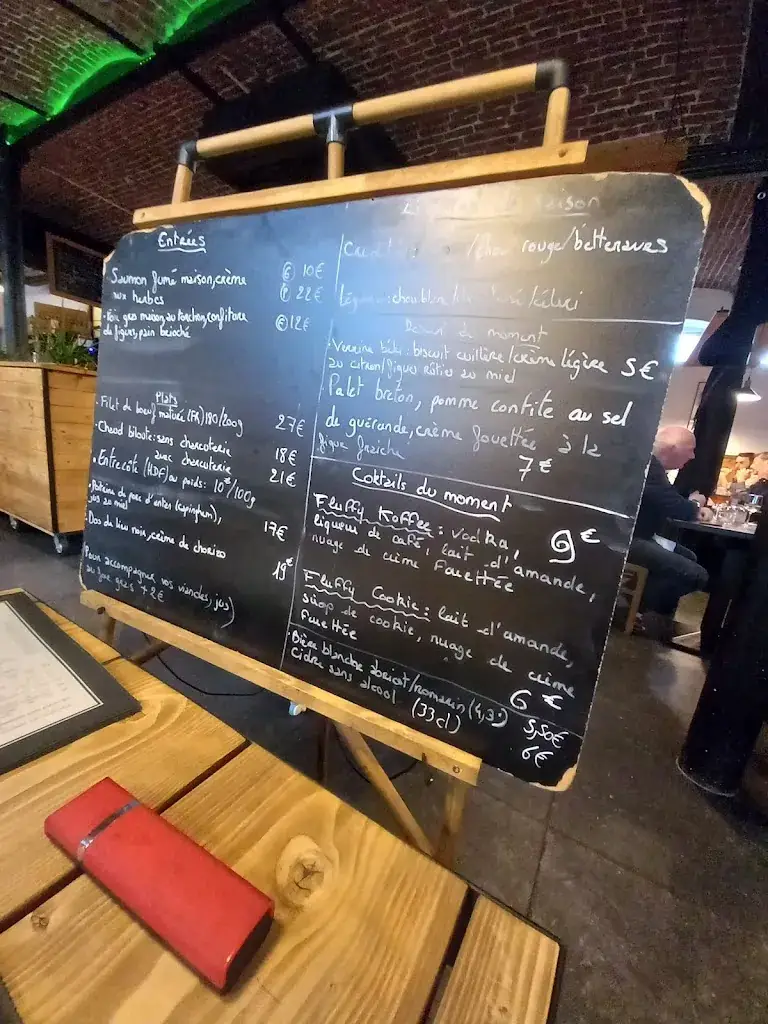 Entrées
Saumon fumé maison, crème 10€
aux herbes 22€
Foie gras maison au torchon, confiture 12€
de figues, pain brioché
Plats
Filet de boeuf maturé (FR) 180/200g 27€
Chaud biloute: sans charcuterie 18€
avec charcuterie 21€
Entrecôte (HDF) au poids: 10€/100g
de porc d'antan (capinghem), 17€
jus au miel
Dos de lieu noir, crème de chorizo 19€
Pour accompagner vos viandes, jus
au foie gras +2€
/chou rouge/betteraves
Légumes: chou blanc /céleri
Dessert du moment
Verrine bébé: biscuit cuillère/crème légère 5€
au citron/figues rôties au miel
Palet breton, pomme confite au sel
de guérande, crème fouettée à la
figue fraîche 7€
Coktails du moment
Fluffy Koffee: Vodka, 9€
liqueur de café, lait d'amande,
nuage de crème fouettée
Fluffy Cookie: lait d'amande,
sirop de cookie, nuage de crème
fouettée 6€
Bière blanche abricot/romarin (4,3°) 5,50€
Cidre sans alcool (33cl) 6€